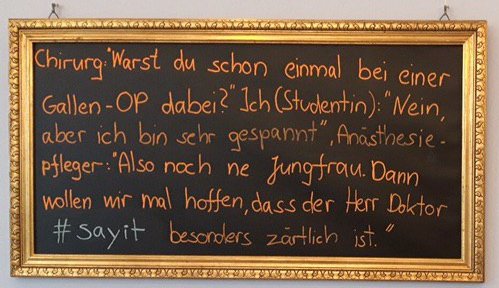 Chirurg: "Warst du schon einmal bei einer
Gallen-OP dabei?" Ich (Studentin): "Nein,
aber ich bin sehr gespannt", Anästhesie-
pfleger: "Also noch ne Jungfrau. Dann
wollen wir mal hoffen, dass der Herr Doktor
#sayit besonders zärtlich ist."